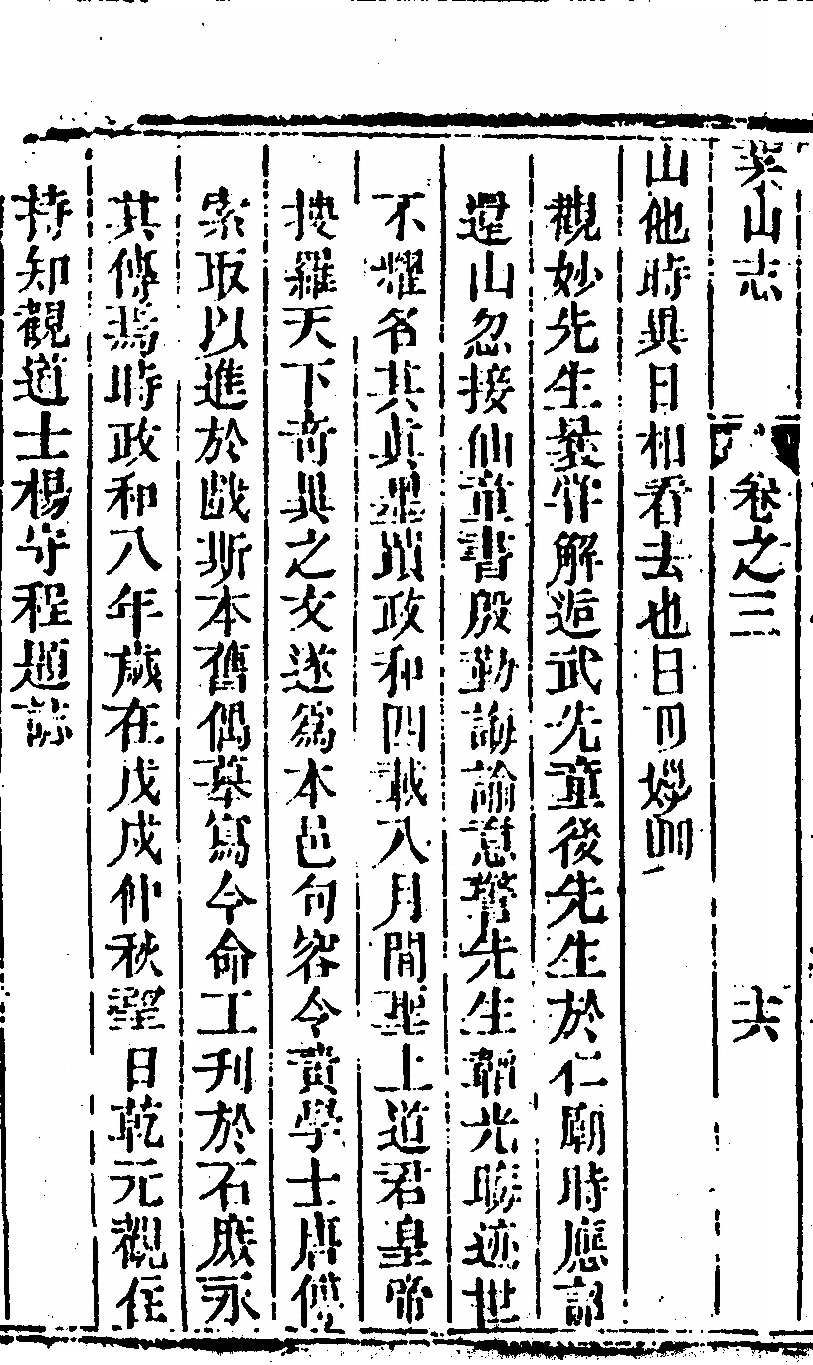 茅山志　卷之三　十六
山他時與日相看去也日月妙叫
觀妙先生義髽解逅武先童後先生於仁廟時應詔
還山忽接仙童書殷勤誨諭意警先生韜光晦迹世
不耀名其眞墨蹟政和四載八月間聖上道君皇帝
搜羅天下奇異之文遂爲本邑句容令黄學士唐傅
索取以進於戲斯本舊偶摹寫今命工刋於石庶永
其傳焉時政和八年歲在戊戌仲秋望日乾元觀住
持知觀道士楊守程題誌